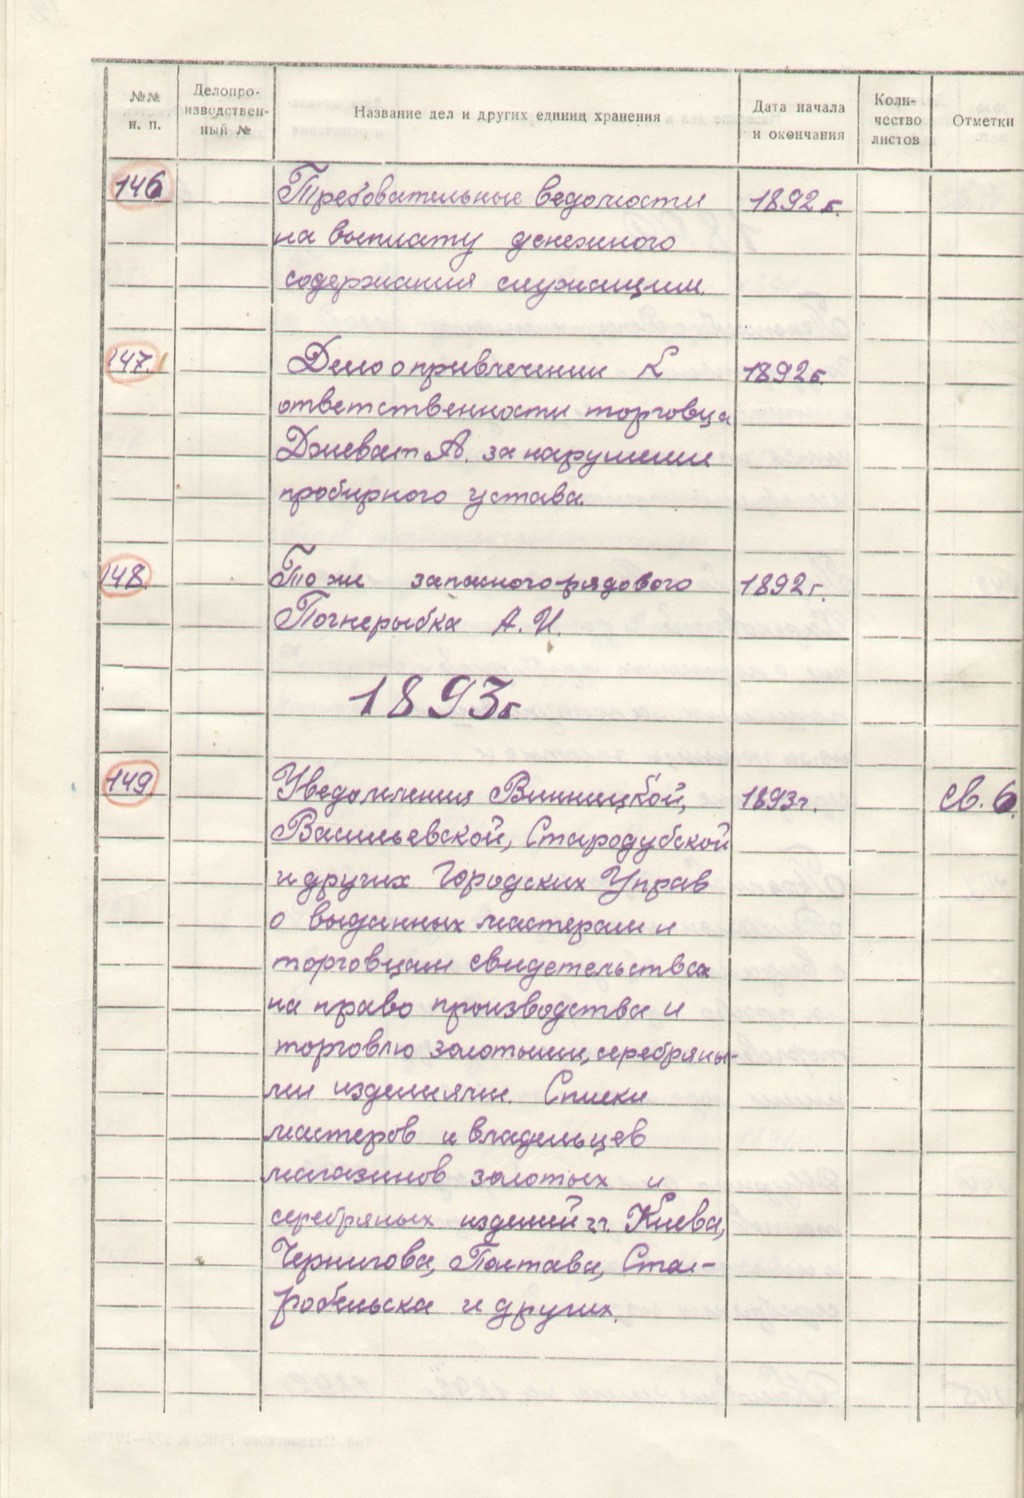 №№ п. п. Делопроизводственный № Название дел и других единиц хранения Дата начала и окончания Количество листов Отметки
146 Требовательные ведомости 1892 г.
на выплату денежного
содержания служащим.
147. Дело о привлечении к 1892 г.
ответственности торговца
Дневат А. за нарушение
пробирного устава.
148. То же запасного рядового 1892 г.
Погнерыбка А. И.
1893 г.
149. Уведомления Винницкой, 1893 г. св. 6.
Васильевской, Стародубской
и других Городских Управ
о выданных мастерам и
торговцам свидетельствах
на право производства и
торговлю золотыми, серебряны-
ми изделиями. Списки
мастеров и владельцев
магазинов золотых и
серебряных изделий гг. Киева,
Чернигова, Полтава, Ста-
робельска и других.